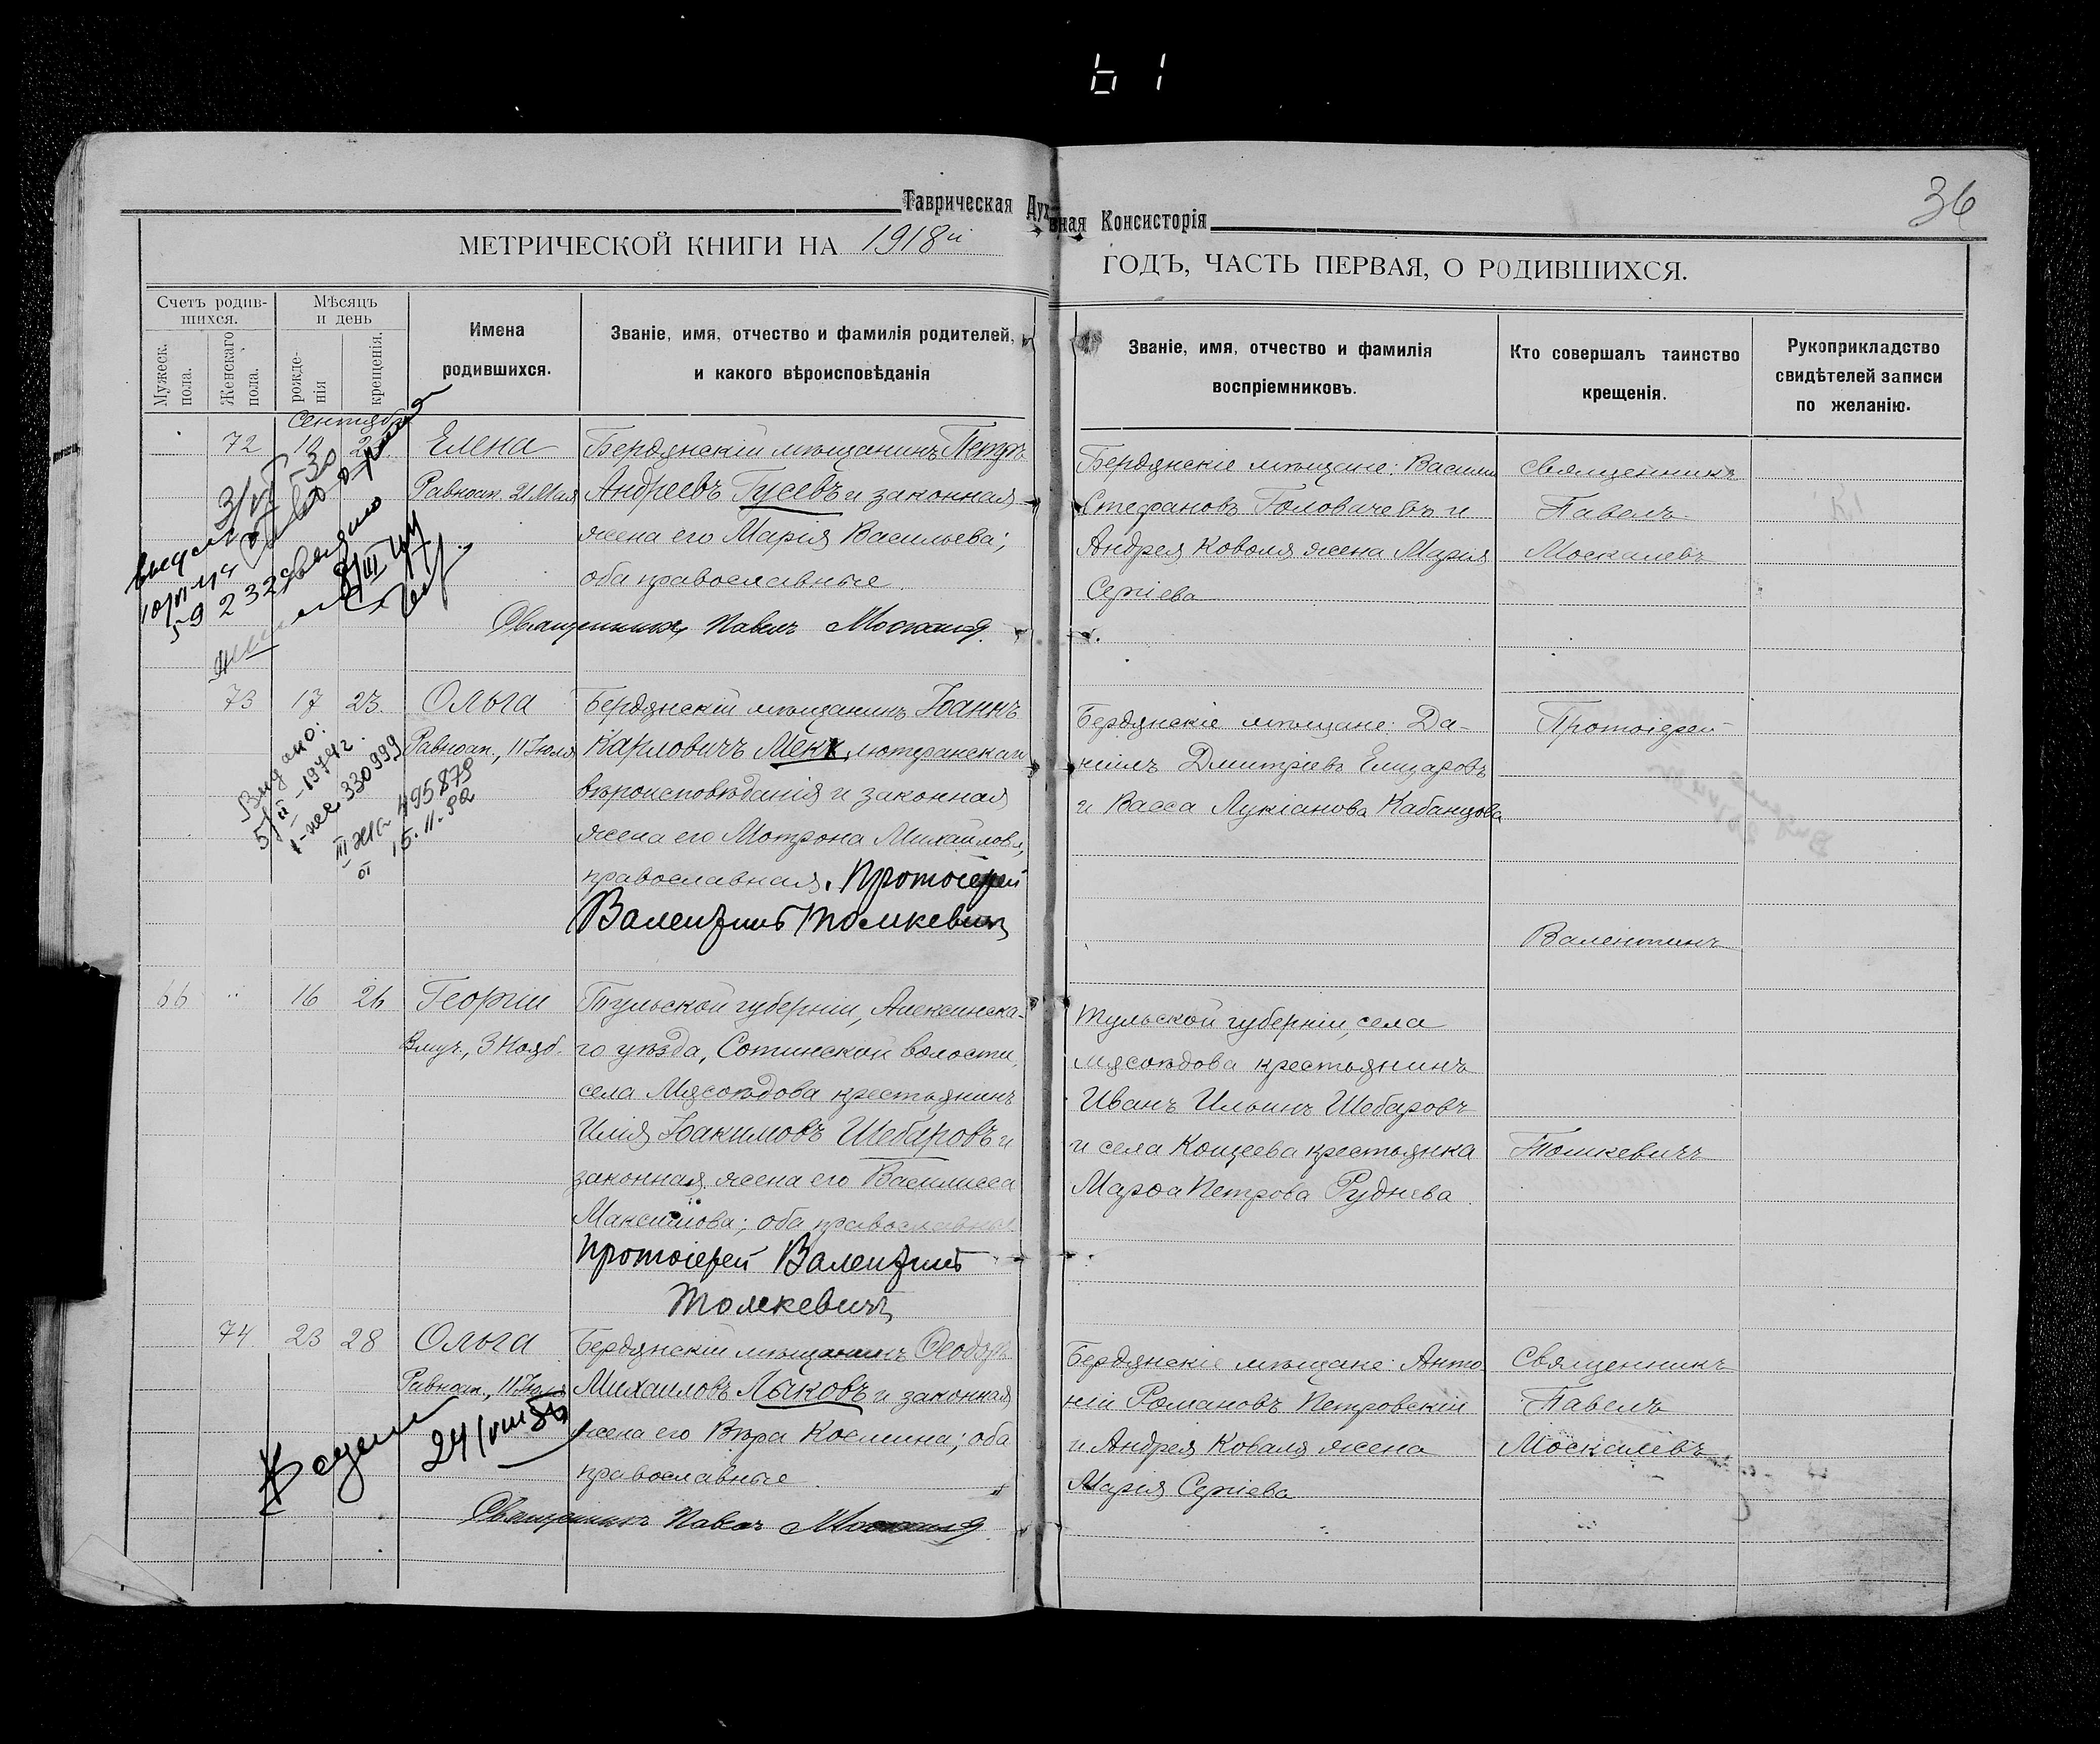 61
36
Таврическая Духовная Консисторія
МЕТРИЧЕСКОЙ КНИГИ НА 1918й
ГОДЪ, ЧАСТЬ ПЕРВАЯ, О РОДИВШИХСЯ.
Счетъ родив-
шихся.
Мужеск.
пола.
Женскаго
пола.
Мѣсяцъ
и день
рожде-
нія
крещенія.
Имена
родившихся.
Званіе, имя, отчество и фамилія родителей,
и какого вѣроисповѣданія
Званіе, имя, отчество и фамилія
воспріемниковъ.
Кто совершалъ таинство
крещенія.
Рукоприкладство
свидѣтелей записи
по желанію.
Сентябр
72
Елена
Равноап. 21 Мая
Бердянскій мѣщанинъ Петръ
Андреевъ Гусевъ и законная
жена его Марія Васильева;
оба православные
Священникъ Павелъ
Бердянскіе мѣщане: Василій
Стефановъ Головачевъ и
Андрея Коваля жена Марія
Сергіева
Священникъ
Павелъ
Москалевъ
73 17 23
Ольга
Равноап., 11 Іюля
Бердянскій мѣщанинъ Іоаннъ
Карловичъ Менк, лютеранскаго
вѣроисповѣданія и законная
жена его Мотрона Михайлова,
православная. Протоіерей
Валентинъ Толмкевичъ
Выдано:
330999
III
495879
15.11.
Бердянскіе мѣщане: Да-
ніилъ Дмитріевъ Елизаровъ
и Васса Лукіанова Кабанцова
Протоіерей
Валентинъ
66 " 16 26
Георгій
Влмч., 3 Нояб.
Тульской губерніи, Алексинска-
го уѣзда, Сотинской волости,
села Мясоѣдова крестьянинъ
Илія Іоакимовъ Шебаровъ и
законная жена его Василисса
Максимова; оба православные
Протоіерей Валентинъ
Тульской губерніи, села
Мясоѣдова крестьянинъ
Иванъ Ильинъ Шебаровъ
и села Кощеева крестьянка
Марѳа Петрова Руднева
74 23 28
Ольга
Равноап., 11 Іюля
Бердянскій мѣщанинъ Ѳеодоръ
Михаиловъ Лыковъ и законная
жена его Вѣра Косьмина; оба
православные
Священникъ Павелъ
Бердянскіе мѣщане: Анто
ній Романовъ Петровскій
и Андрея Коваля жена
Марія Сергіева
Священникъ
Павелъ
Москалевъ